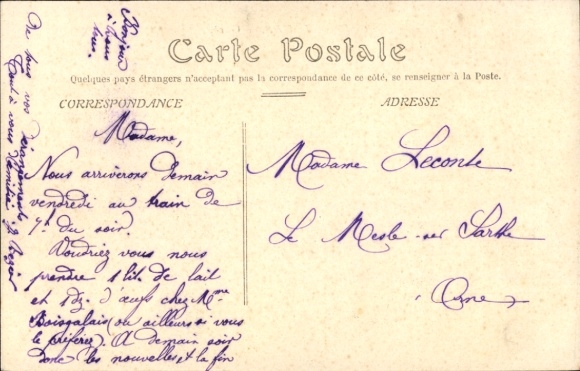 Carte Postale
Quelques pays étrangers n'acceptent pas la correspondance de ce côté, se renseigner à la Poste.
CORRESPONDANCE
ADRESSE
Madame,
Nous arriverons demain
vendredi au train de
7h du soir.
Voudriez vous nous
prendre 1 lit. de lait
et 1 dz. d'œufs chez Mme
Boisgalais (ou ailleurs si vous
le préférez). A demain soir
donc les nouvelles, et la fin
de tous vos dérangements
Tout à vous d'amitié
Bonjour
à tous
Madame Leconte
Le Mesle-sur Sarthe
Orne